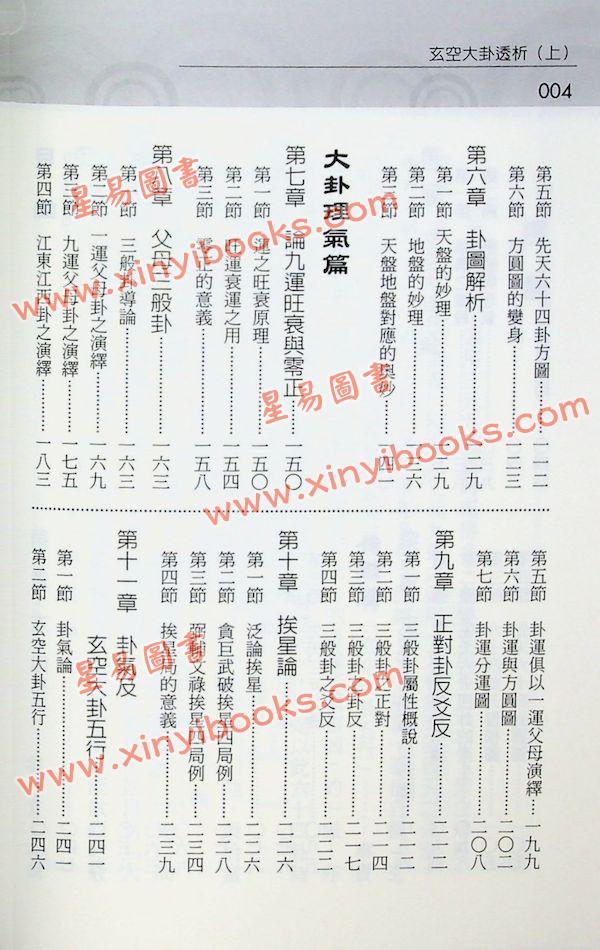 玄空大卦透析（上）
004
第五節　先天六十四卦方圖⋯⋯一一二
第六節　方圓圖的變身⋯⋯一二三
第六章　卦圖解析⋯⋯一二九
第一節　天盤的妙理⋯⋯一二九
第二節　地盤的妙理⋯⋯一三六
第三節　天盤地盤對應的奧妙⋯⋯一四一
大卦理氣篇
第七章　論九運旺衰與零正⋯⋯一五〇
第一節　運之旺衰原理⋯⋯一五〇
第二節　旺運衰運之用⋯⋯一五四
第三節　零正的意義⋯⋯一五八
第八章　父母三般卦⋯⋯一六三
第一節　三般卦導論⋯⋯一六三
第二節　一運父母卦之演繹⋯⋯一六九
第三節　九運父母卦之演繹⋯⋯一七五
第四節　江東江西卦之演繹⋯⋯一八三
第五節　卦運俱以一運父母演繹⋯⋯一九九
第六節　卦運與方圓圖⋯⋯二〇二
第七節　卦運分運圖⋯⋯二〇八
第九章　正對卦反爻反⋯⋯二一二
第一節　三般卦屬性概說⋯⋯二一二
第二節　三般卦之正對⋯⋯二一四
第三節　三般卦之卦反⋯⋯二一七
第四節　三般卦之爻反⋯⋯二二二
第十章　挨星論⋯⋯二二六
第一節　泛論挨星⋯⋯二二六
第二節　貪巨武破挨星四局例⋯⋯二二八
第三節　弼輔文祿挨星四局例⋯⋯二三四
第四節　挨星局的意義⋯⋯二三九
第十一章　卦氣及
玄空大卦五行⋯⋯二四一
第一節　卦氣論⋯⋯二四一
第二節　玄空大卦五行⋯⋯二四六
星易圖書
www.xinyibooks.com
星易圖書
www.xinyibooks.com
星易圖書
www.xinyibooks.com